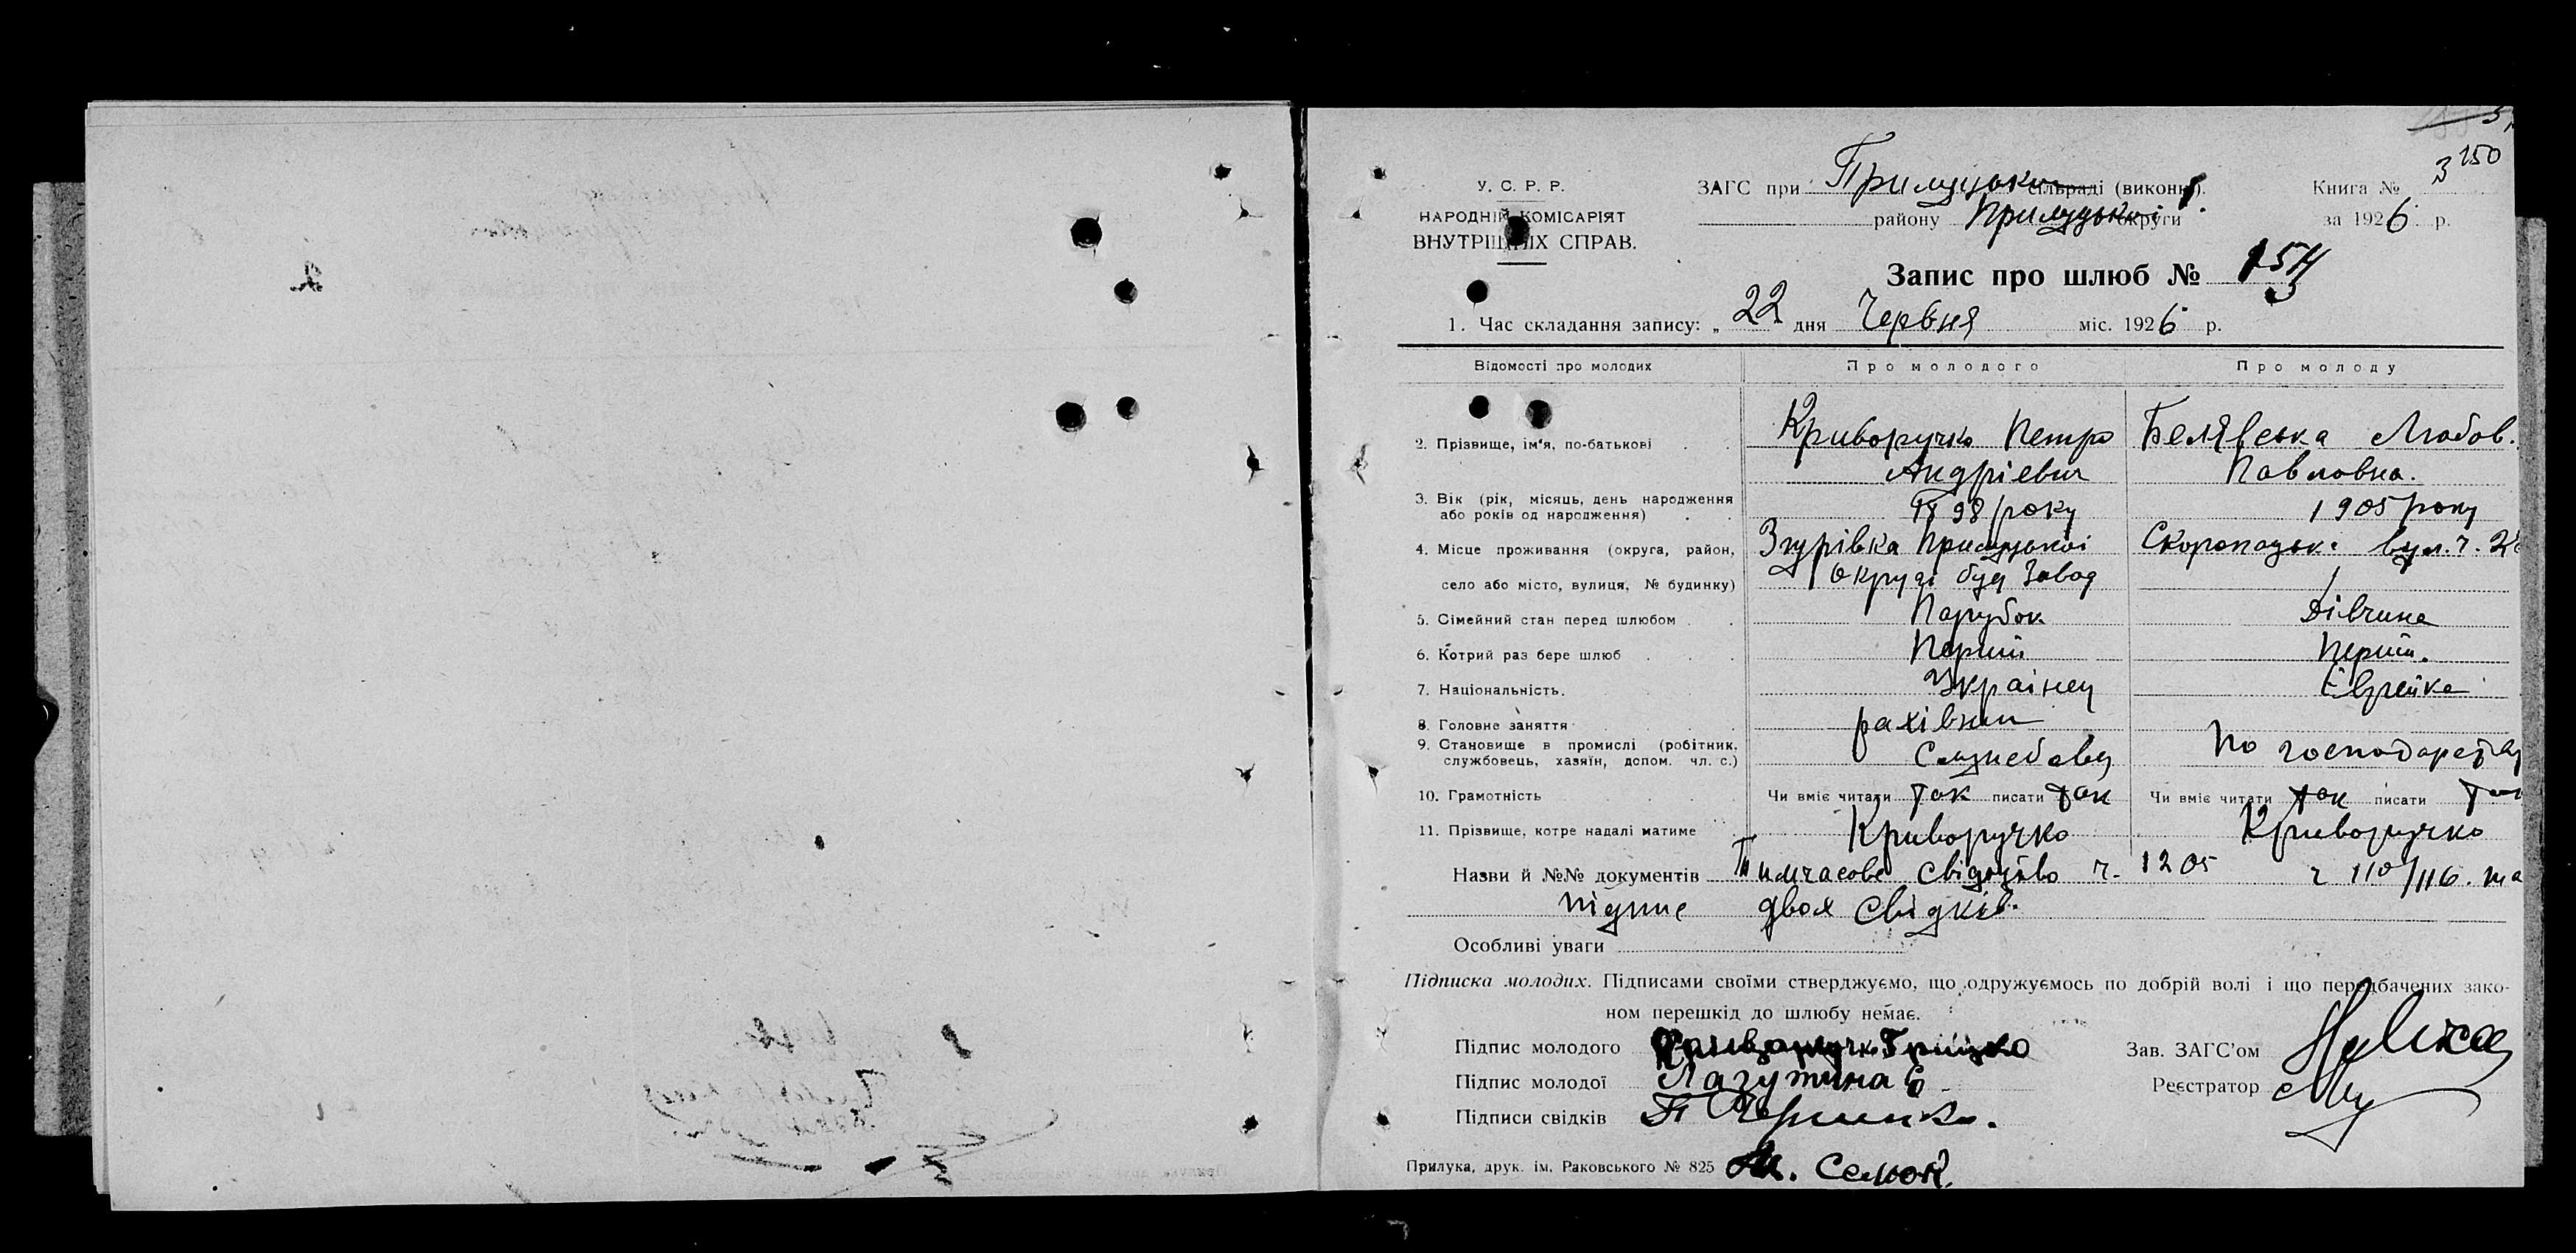 150
У. С. Р. Р.
НАРОДНІЙ КОМІСАРІЯТ
ВНУТРІШНІХ СПРАВ.
ЗАГС при Прилуцьком сільраді (виконк).
району Прилуцької округи
Книга № 3
за 1926 р.
Запис про шлюб № 154
1. Час складання запису: „ 22 дня Червня міс. 1926 р.
Відомості про молодих Про молодого Про молоду
2. Прізвище, ім'я, по-батькові Криворучко Петро Белявська Любов.
Андрієвич Павловна.
3. Вік (рік, місяць, день народження
або років од народження) 1898 року 1905 року
4. Місце проживання (округа, район, Згурівка Прилуцькоі Скоропадськ. вул. ч.
село або місто, вулиця, № будинку) Округі буд Завод
5. Сімейний стан перед шлюбом Парубок Дівчина
6. Котрий раз бере шлюб Перший Перш.
7. Національність. Украінец Єврейка
8. Головне заняття рахівник
9. Становище в промислі (робітник,
службовець, хазяїн, допом. чл. с.) Служебовец По господарству
10. Грамотність Чи вміє читати так писати так Чи вміє читати так писати так
11. Прізвище, котре надалі матиме Криворучко Криворучко
Назви й №№ документів Тимчасове Свідоцтво ч. 1205 ч 110/116. та
підпис двох Свідків.
Особливі уваги
Підписка молодих. Підписами своїми стверджуємо, що одружуємось по добрій волі і що передбачених зако-
ном перешкід до шлюбу немає.
Підпис молодого
Зав. ЗАГС'ом
Підпис молодої Лагутина
Реєстратор
Підписи свідків
Прилука, друк. ім. Раковського № 825